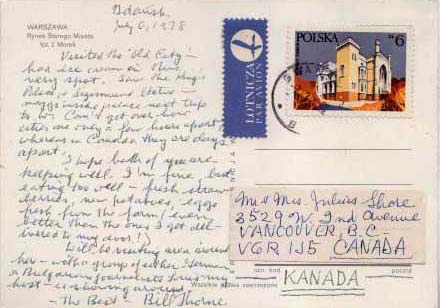 WARSZAWA
Rynek Starego Miasta
fot. J. Morek
Gdańsk
July 6, 1978
Visited the "Old City" –
had ice cream at this
very spot. Saw the King's
Palace & Sigismund Statue –
maybe inside palace next trip
to W. Can't get over how
cities are only a few hours apart
whereas in Canada they are days
apart.
I hope both of you are
keeping well. I'm fine, but
eating too well – fresh straw-
berries, new potatoes, eggs
fresh from the farm (even
better than the ones I get del-
ivered to my door!)
Will be visiting area around
here – with a group of other German
& Bulgarian journalists
host – 
– The Best – Bill Thorne
LOTNICZA
PAR AVION
POLSKA
zł 6
Mr & Mrs. Julius Shore
3529 W. 2nd Avenue
VANCOUVER, B.C.
V6R 1J5 CANADA
KANADA
poczta
Wszelkie prawa zastrzeżone